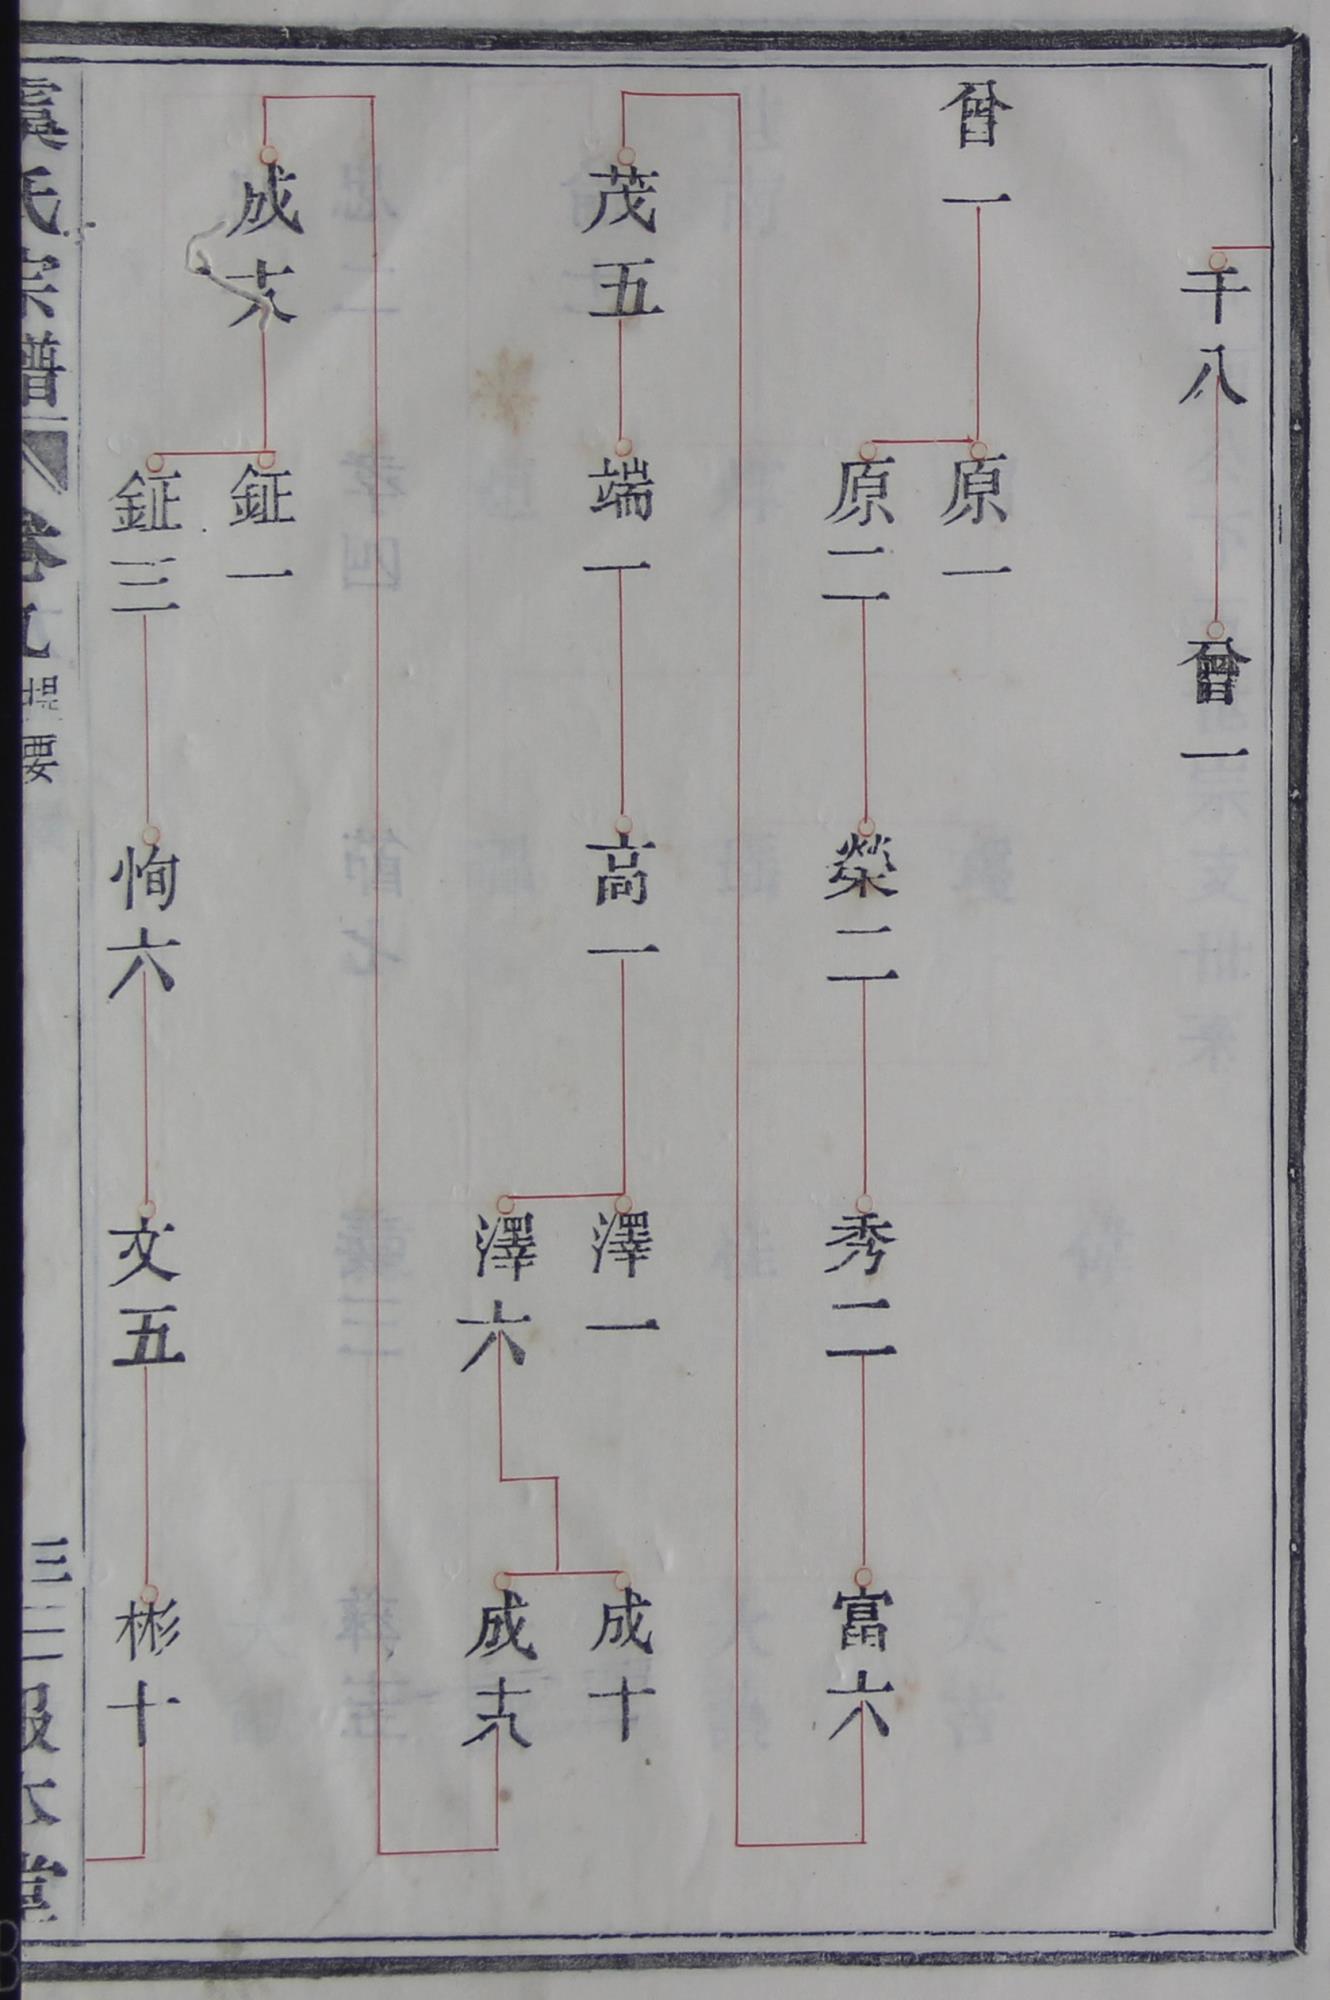 千八
曾一
曾一
原一
原二
榮二
秀二
富六
茂五
端一
高一
澤一
澤六
成十
成
成
鉦一
鉦三
恂六
文五
彬十
虞氏宗譜
卷九
提要
報本堂